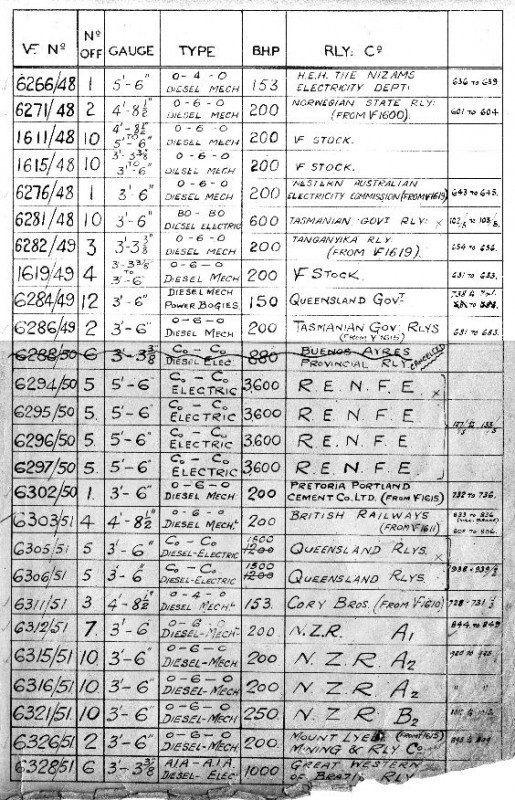 VF. Nº Nº OFF GAUGE TYPE B.H.P RLY: Cº
6266/48 1 5'-6" 0-4-0 DIESEL MECH 153 H.E.H. THE NIZAMS ELECTRICITY DEPT: 636 to 639
6271/48 2 4'-8½" 0-6-0 DIESEL MECH 200 NORWEGIAN STATE RLY: (FROM VF1600) 601 to 604
1611/48 10 4'-8½" TO 5'-6" 0-6-0 DIESEL MECH 200 VF STOCK.
1615/48 10 3'-3⅜" TO 3'-6" 0-6-0 DIESEL MECH 200 VF STOCK.
6276/48 1 3'-6" 0-6-0 DIESEL MECH 200 WESTERN AUSTRALIAN ELECTRICITY COMMISSION (FROM VF1615) 643 to 645.
6281/48 10 3'-6" BO-BO DIESEL ELECTRIC 600 TASMANIAN GOVT RLY: x
6282/49 3 3'-3⅜" 0-6-0 DIESEL MECH 200 TANGANYIKA RLY. (FROM VF1619) 654 to 656.
1619/49 4 3'-3⅜" TO 3'-6" 0-6-0 DIESEL MECH 200 VF STOCK 681 to 683.
6284/49 12 3'-6" DIESEL MECH POWER BOGIES. 150 QUEENSLAND GOVT
6286/49 2 3'-6" 0-6-0 DIESEL MECH 200 TASMANIAN GOV: RLYS (FROM VF1615) 681 to 683.
6288/50 6 3'-3⅜" Co-Co DIESEL ELEC 880 BUENOS AYRES PROVINCIAL RLY. CANCELLED
6294/50 5 5'-6" Co-Co ELECTRIC 3,600 R.E.N.F.E. x
6295/50 5. 5'-6" Co-Co ELECTRIC 3,600 R.E.N.F.E
6296/50 5. 5'-6" Co-Co ELECTRIC 3,600 R.E.N.F.E
6297/50 5. 5'-6" Co-Co ELECTRIC 3,600 R.E.N.F.E.
6302/50 1. 3'-6" 0-6-0 DIESEL MECH 200 PRETORIA PORTLAND CEMENT Co. LTD. (FROM VF1615) 732 to 736.
6303/51 4 4'-8½" 0-6-0 DIESEL MECHL 200 BRITISH RAILWAYS (FROM VF1611)
6305/51 5 3'-6" Co-Co DIESEL-ELECTRIC 1500 1200 QUEENSLAND RLYS. x
6306/51 5 3'-6" Co-Co DIESEL-ELECTRIC 1500 1200 QUEENSLAND RLYS.
6311/51 3 4'-8½" 0-4-0 DIESEL MECHL 153. CORY BROS. (FROM VF1610) 728-731
6312/51 7. 3'-6" 0-6-0 DIESEL-MECHL 200. N.Z.R. A1 844 to 849
6315/51 10 3'-6" 0-6-0 DIESEL-MECH 200 N.Z.R. A2
6316/51 10 3'-6" 0-6-0 DIESEL-MECH 200 N.Z.R. A2 " "
6321/51 10 3'-6" 0-6-0 DIESEL-MECH 250 N.Z.R. B2
6326/51 2 3'-6" 0-6-0 DIESEL-MECH 200. MOUNT LYELL (FROM VF1615) MINING & RLY Co
6328/51 6 3'-3⅜" A.I.A-A.I.A. DIESEL-ELEC 1000 GREAT WESTERN OF BRAZIL RLY